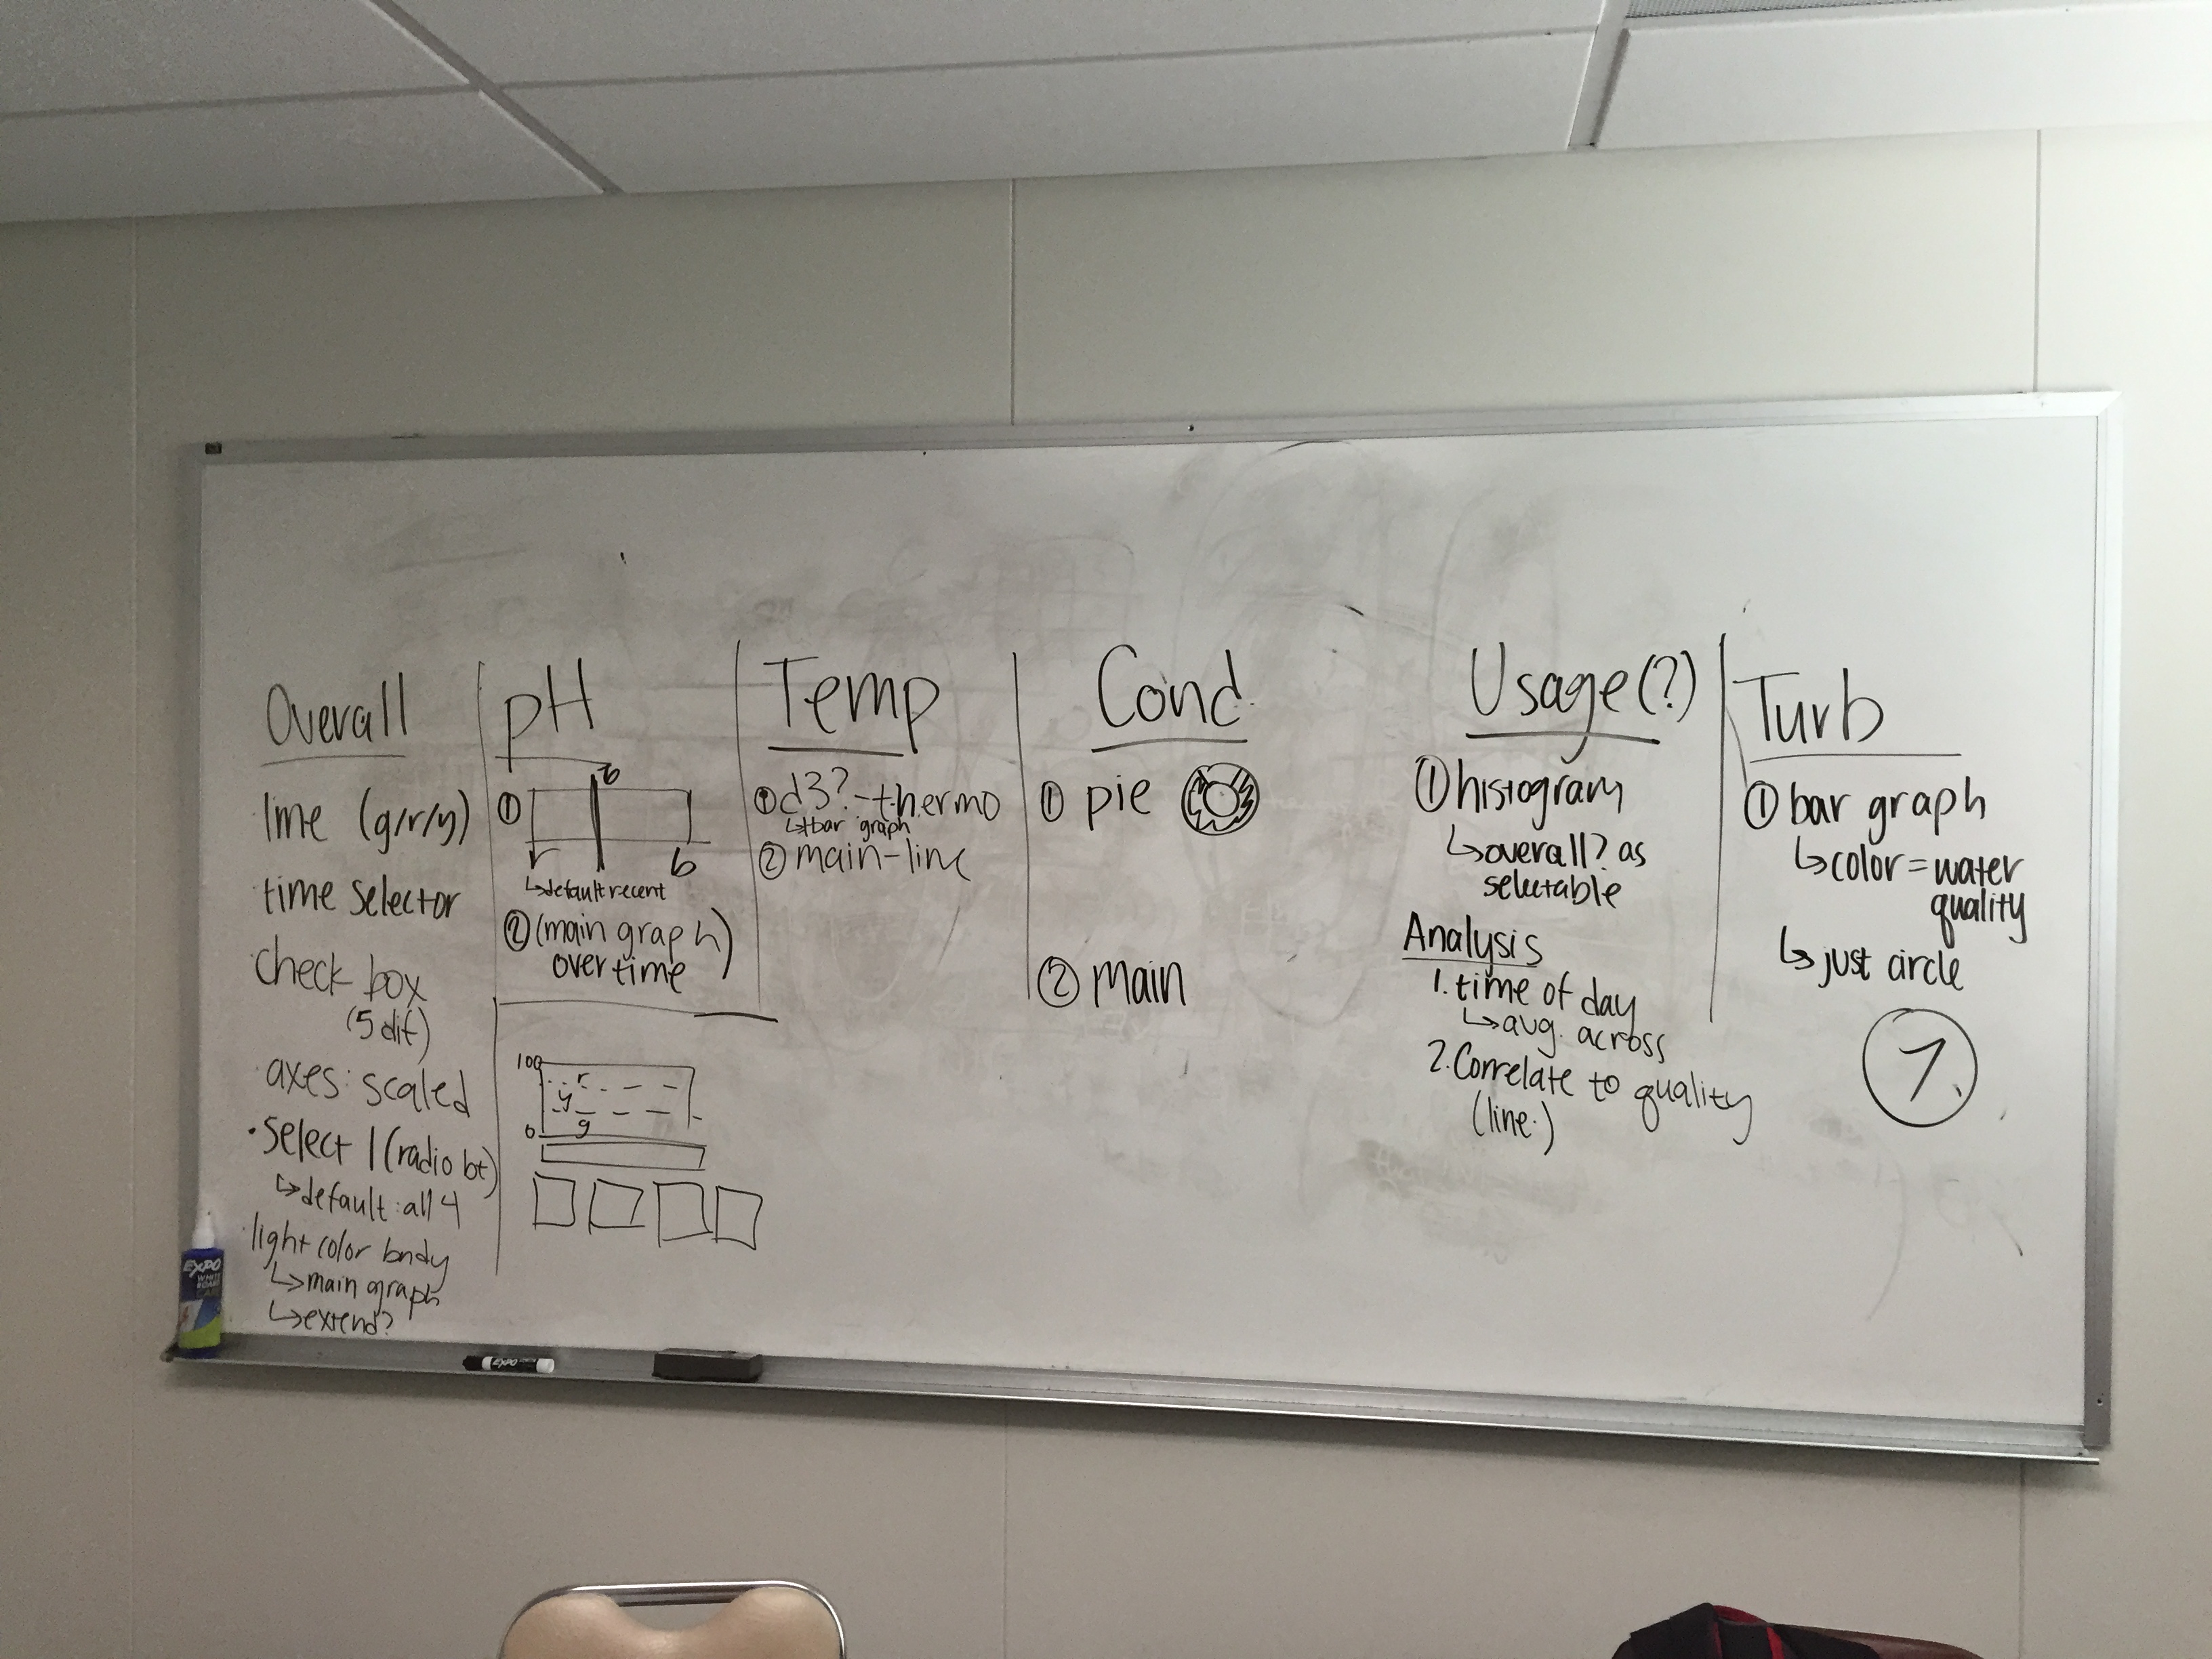 Overall
line (g/r/y)
time selector
check box
(5 dif)
axes: scaled
• select 1 (radio bt)
↳ default: all 4
light color bndy
↳ main graph
↳ extend?
pH
①
r
b
↳ default recent
② (main graph)
over time
100
r
y
g
0
Temp
① d3? - thermo
↳ bar graph
② main - line
Cond.
① pie
② main
Usage(?)
① histogram
↳ overall? as
selectable
Analysis
1. time of day
↳ avg. across
2. Correlate to quality
(line.)
Turb
① bar graph
↳ color = water
quality
↳ just circle
EXPO
WHITE
BOARD
EXPO